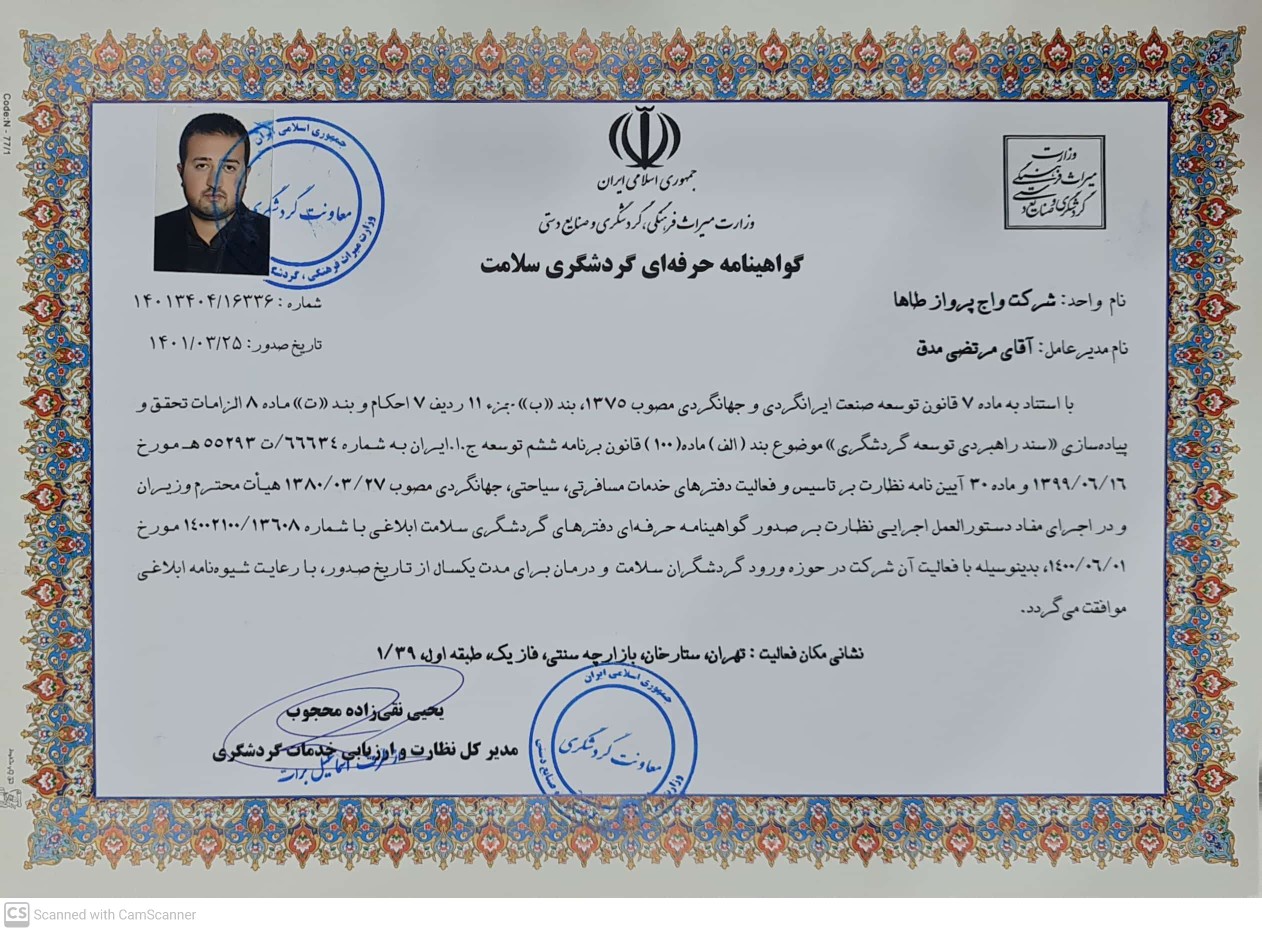 Code:N - 77/1
جمهوری اسلامی ایران
وزارت میراث فرهنگی، گردشگری و صنایع دستی
وزارت
میراث فرهنگی
گردشگری و صنایع دستی
جمهوری اسلامی ایران
معاونت گردشگری
وزارت میراث فرهنگی، گردشگ
گواهینامه حرفه‌ای گردشگری سلامت
نام واحد: شرکت واج پرواز طاها
شماره: ۱۴۰۱۳۴۰۴/۱۶۳۳۶
نام مدیر عامل: آقای مرتضی مدق
تاریخ صدور: ۱۴۰۱/۰۳/۲۵
با استناد به ماده ۷ قانون توسعه صنعت ایرانگردی و جهانگردی مصوب ۱۳۷۵، بند «ب»-جزء ۱۱ ردیف ۷ احکام و بند «ت» ماده ۸ الزامات تحقق و
پیاده‌سازی «سند راهبردی توسعه گردشگری» موضوع بند (الف) ماده(۱۰۰) قانون برنامه ششم توسعه ج.ا.ایران به شماره ۶۶۶۳۴/ت ۵۵۲۹۳ هـ مورخ
۱۳۹۹/۰۶/۱۶ و ماده ۳۰ آیین نامه نظارت بر تاسیس و فعالیت دفترهای خدمات مسافرتی، سیاحتی، جهانگردی مصوب ۱۳۸۰/۰۳/۲۷ هیأت محترم وزیران
و در اجرای مفاد دستورالعمل اجرایی نظارت بر صدور گواهینامه حرفه‌ای دفترهای گردشگری سلامت ابلاغی با شماره ۱۴۰۰۲۱۰۰/۱۳۶۰۸ مورخ
۱۴۰۰/۰۶/۰۱، بدینوسیله با فعالیت آن شرکت در حوزه ورود گردشگران سلامت و درمان برای مدت یکسال از تاریخ صدور، با رعایت شیوه‌نامه ابلاغی
موافقت می‌گردد.
نشانی مکان فعالیت : تهران، ستارخان، بازارچه سنتی، فاز یک، طبقه اول، ۱/۳۹
یحیی نقی‌زاده محجوب
مدیر کل نظارت و ارزیابی خدمات گردشگری
از طرف اسماعیل برات
جمهوری اسلامی ایران
معاونت گردشگری
CS Scanned with CamScanner